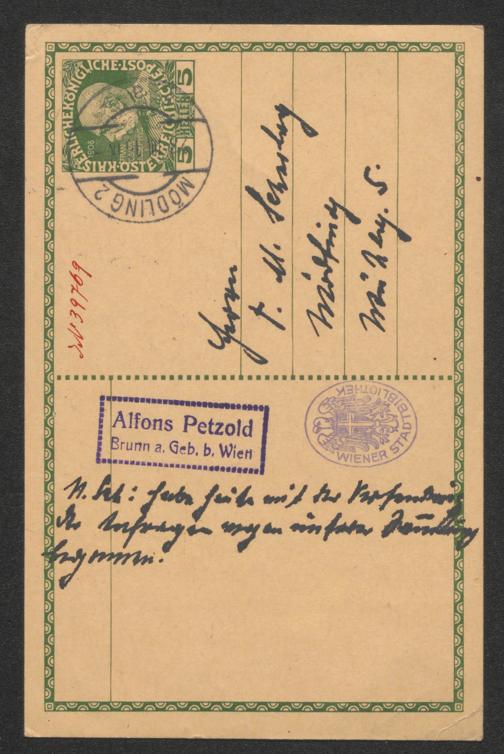 KAISERLICHE KÖNIGLICHE ÖSTERREICHISCHE POST
5 HELLER 5
1908
MÖDLING 2
Herrn
F. M.
Mödling
5.
I.N 39769
Alfons Petzold
Brunn a. Geb. b. Wien
WIENER STADTBIBLIOTHEK
habe heute mit der Versendung
der Anfragen wegen unserer Sammlung
begonnen.